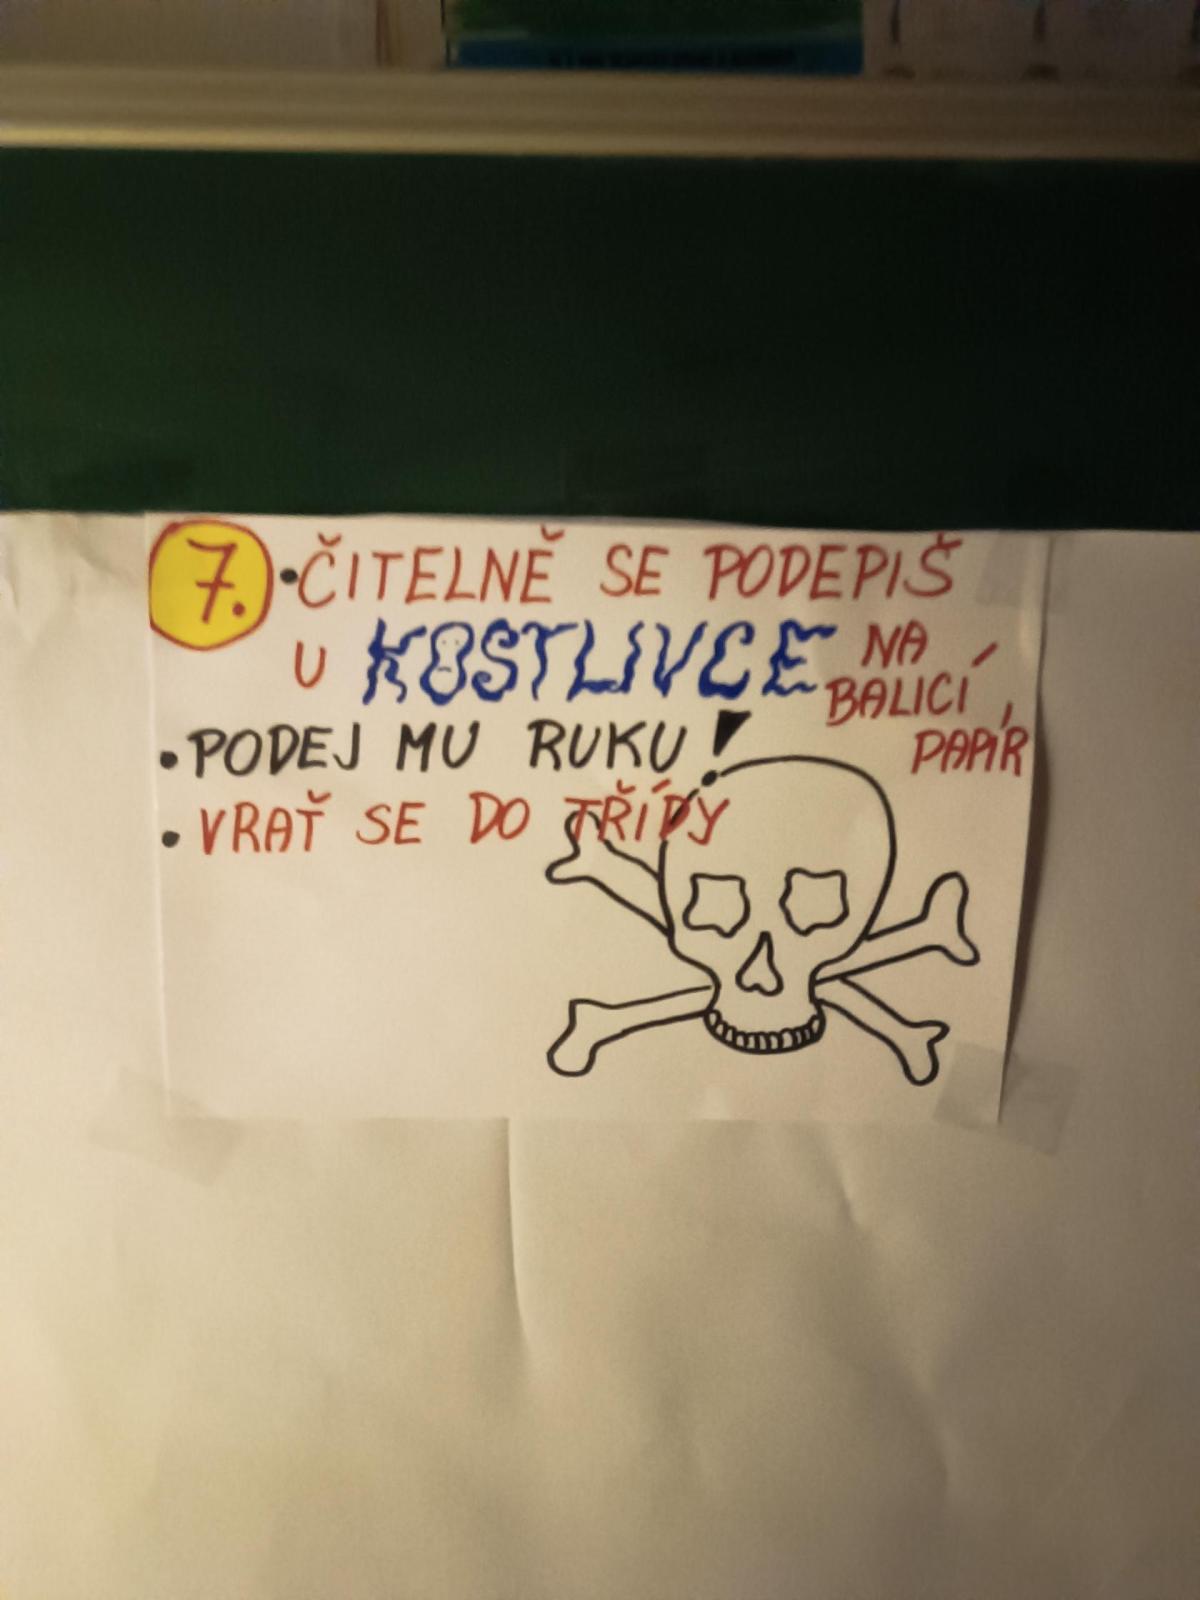 7. • ČITELNĚ SE PODEPIŠ
U KOSTLIVCE NA
BALICÍ
PAPÍR
• PODEJ MU RUKU!
• VRAŤ SE DO TŘÍDY